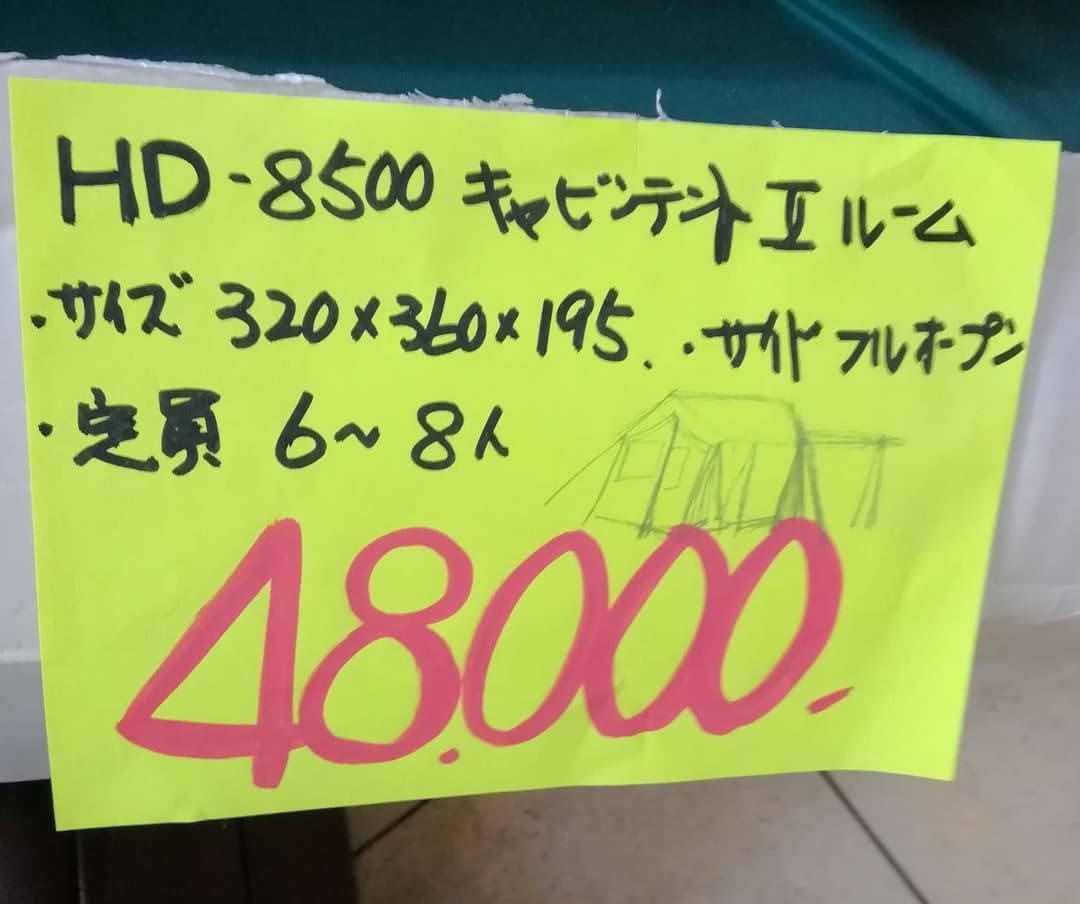 HD-8500 キャビンテント Ⅱルーム
・サイズ 320×360×195. ・サイドフルオープン
・定員 6～8人
48.000.-